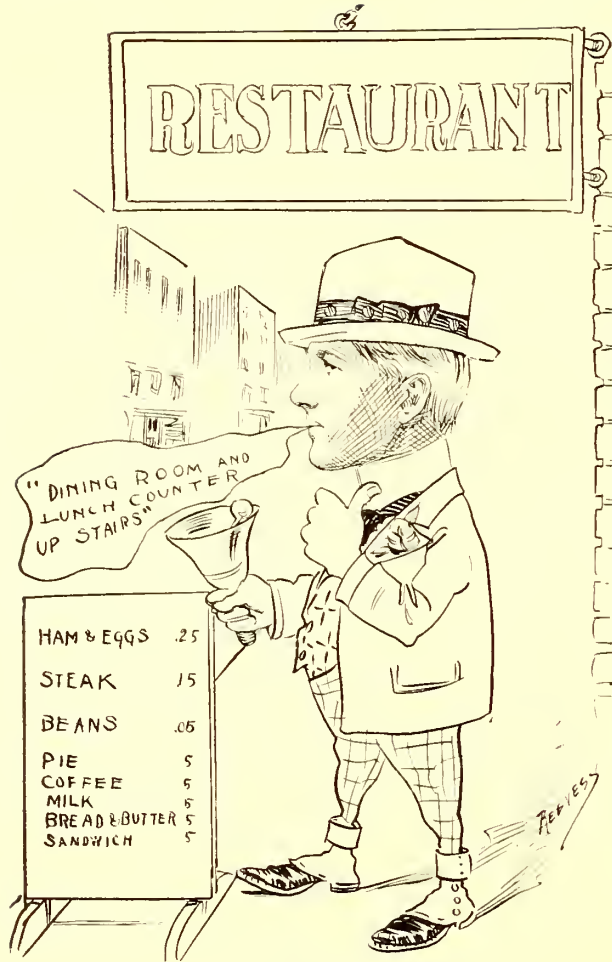 RESTAURANT
"DINING ROOM AND
LUNCH COUNTER
UP STAIRS"
HAM & EGGS .25
STEAK 15
BEANS .05
PIE 5
COFFEE 5
MILK 5
BREAD & BUTTER 5
SANDWICH 5
REEVES